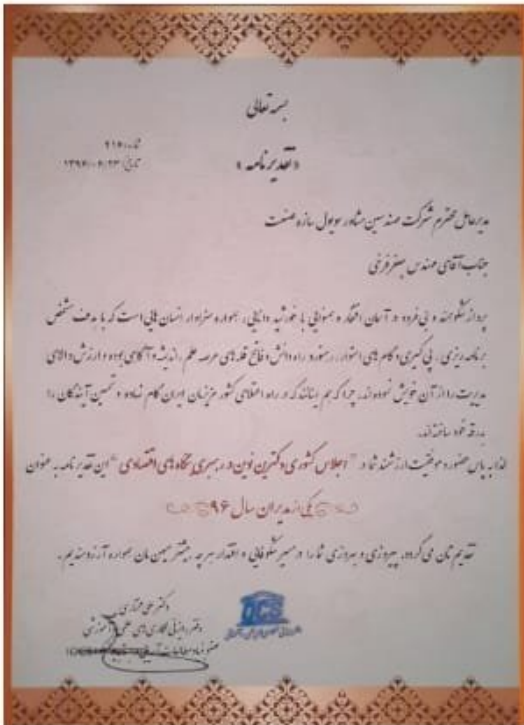 بسمه تعالی
شماره: ۹۱۶۰۰۰
تاریخ: ۱۳۹۶/۰۶/۲۳
« تقدیرنامه »
مدیرعامل محترم شرکت مهندسین مشاور سوپل سازه صنعت
جناب آقای مهندس جعفر فرخی
پرواز شکوهمند و بی فرود در آسمان افتخار و همنوایی با خورشید دانایی، همواره سزاوار انسان هایی است که با هدف مشخص
برنامه ریزی، پی گیری و گام های استوار، رهنورد راه دانش و فاتح قله های عرصه علم، اندیشه و آگاهی بوده و ارزش والای
مدیریت را از آن خویش نموده اند، چرا که هم اینانند که در راه اعتلای کشور عزیزمان ایران گام نهاده و تحسین آیندگان را
بدرقه خود ساخته اند.
لذا به پاس حضور و موفقیت ارزشمند شما در "اجلاس کشوری دکترین نوین در رهبری بنگاه های اقتصادی" این تقدیرنامه به عنوان
یکی از مدیران سال ۹۶
تقدیم تان می گردد. پیروزی و بهروزی شما را در مسیر شکوفایی و اقتدار هر چه بیشتر میهن مان همواره آرزومندیم.
دکتر علی
دفتر همکاری های علمی آموزشی
QCS